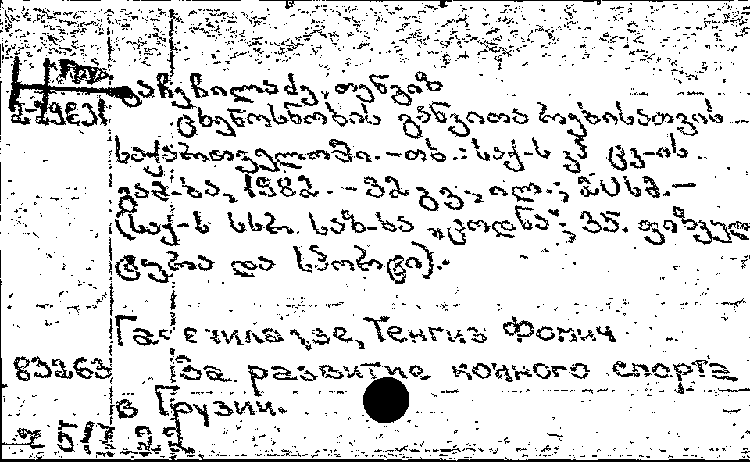 გაჩეჩილაძე, თენგიზ
2-29631 ცხენოსნობის განვითარებისათვის
საქართველოში. - თბ.: საქ-ს კპ ცკ-ის
გამ-ბა, 1982. - 32 გვ., ილ.; 20 სმ. -
(საქ-ს სსრ საზ-ბა „ცოდნა“; 35. ფიზკულ
ტურა და სპორტი).
Гачечиладзе, Тенгиз Фомич
83263 За развитие конного спорта
в Грузии.